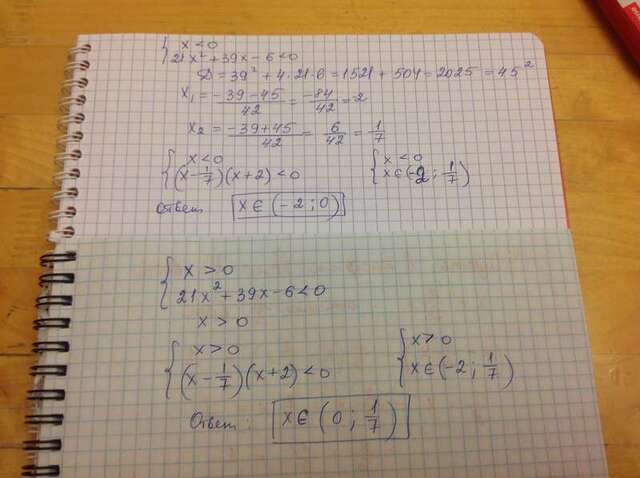 { x < 0
{ 21x² + 39x - 6 < 0
D = 39² + 4 · 21 · 6 = 1521 + 504 = 2025 = 45²
x₁ = (-39 - 45)/42 = -84/42 = -2
x₂ = (-39 + 45)/42 = 6/42 = 1/7
{ x < 0 { x < 0
{ (x - 1/7)(x + 2) < 0 { x ∈ (-2 ; 1/7)
Ответ x ∈ (-2 ; 0)
{ x > 0
{ 21x² + 39x - 6 < 0
x > 0
{ x > 0 { x > 0
{ (x - 1/7)(x + 2) < 0 { x ∈ (-2 ; 1/7)
Ответ : x ∈ (0 ; 1/7)